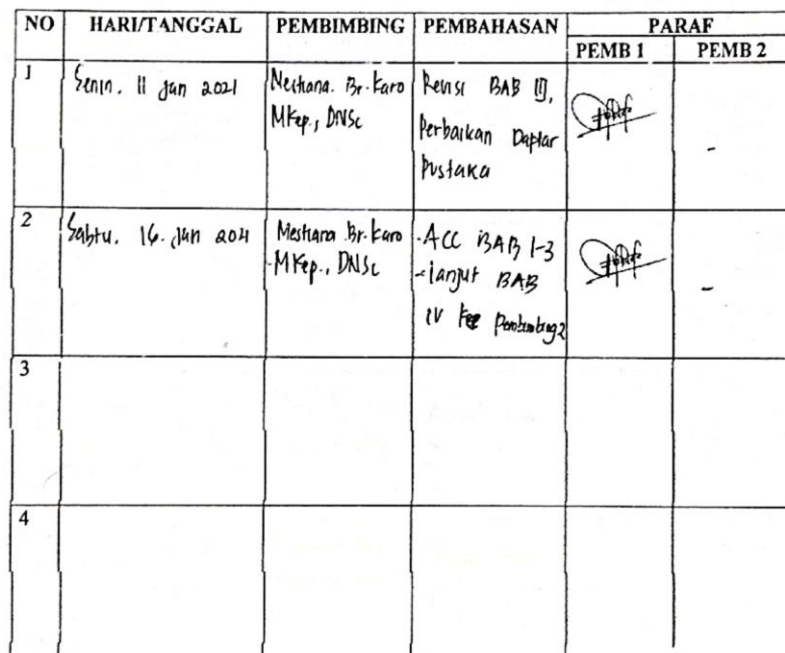 NO HARI/TANGGAL PEMBIMBING PEMBAHASAN PARAF
PEMB 1 PEMB 2
1 Senin. 11 Jan 2021 Mestiana. Br. Karo Revisi BAB III,
MKep., DNSc Perbaikan Daptar
Pustaka
-
2 Sabtu. 16. Jan 2021 Mestiana Br. Karo - ACC BAB 1-3
MKep., DNSc - lanjut BAB
IV ke Pembimbing 2
-
3
4